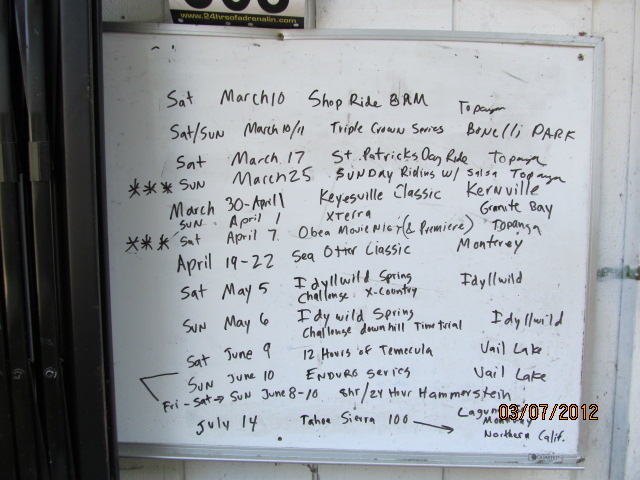 www.24hrsofadrenalin.com
Sat March 10 Shop Ride BRM Topanga
Sat/Sun March 10/11 Triple Crown Series Bonelli PARK
Sat March 17 St. Patricks Day Ride Topanga
*** SUN March 25 SUNDAY Riding w/ Salsa Topanga
March 30-April 1 Keyesville Classic Kernville
SUN April 1 XTerra Granite Bay
*** Sat April 7 Obea Movie Night (& Premiere) Topanga
April 19-22 Sea Otter Classic Montrey
Sat May 5 Idyllwild Spring Challenge X-Country Idyllwild
SUN May 6 Idywild Spring Challenge downhill Time trial Idyllwild
Sat June 9 12 Hours of Temecula Vail Lake
SUN June 10 ENDURO Series Vail Lake
Fri - Sat → SUN June 8-10 8hr/24 Hour Hammerstein
July 14 Tahoe Sierra 100 → Northern Calif.
03/07/2012